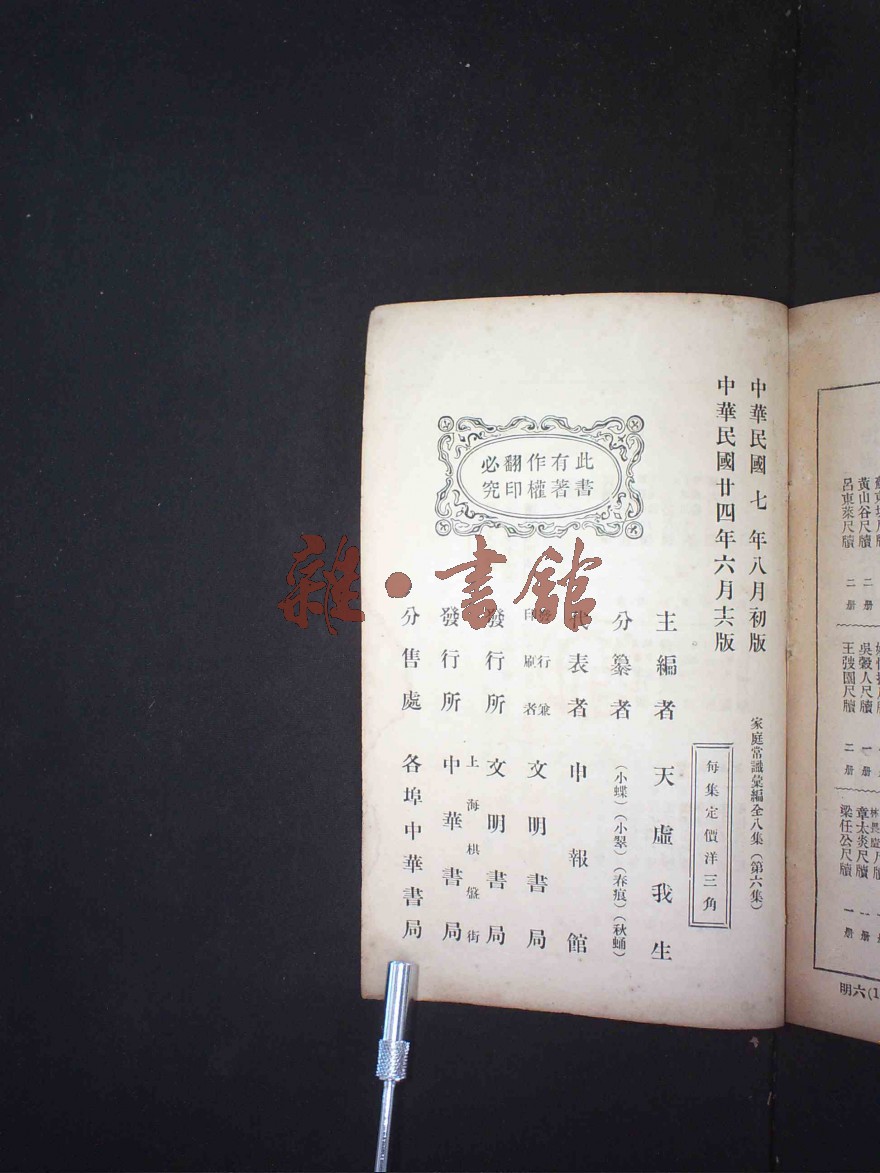 中華民國七年八月初版
中華民國廿四年六月十六版
家庭常識彙編全八集（第六集）
每集定價洋三角
此書
有著
作權
翻印
必究
主編者 天虛我生
分纂者 （小蝶）（小翠）（春痕）（秋蛹）
代表者 申報館
發行兼
印刷者 文明書局
發行所 文明書局
上海棋盤街
發行所 中華書局
分售處 各埠中華書局
雜·書館
黃山谷尺牘 二冊
呂東萊尺牘 二冊
吳穀人尺牘 一冊
王弢園尺牘 二冊
章太炎尺牘 一冊
梁任公尺牘 一冊
明六(1